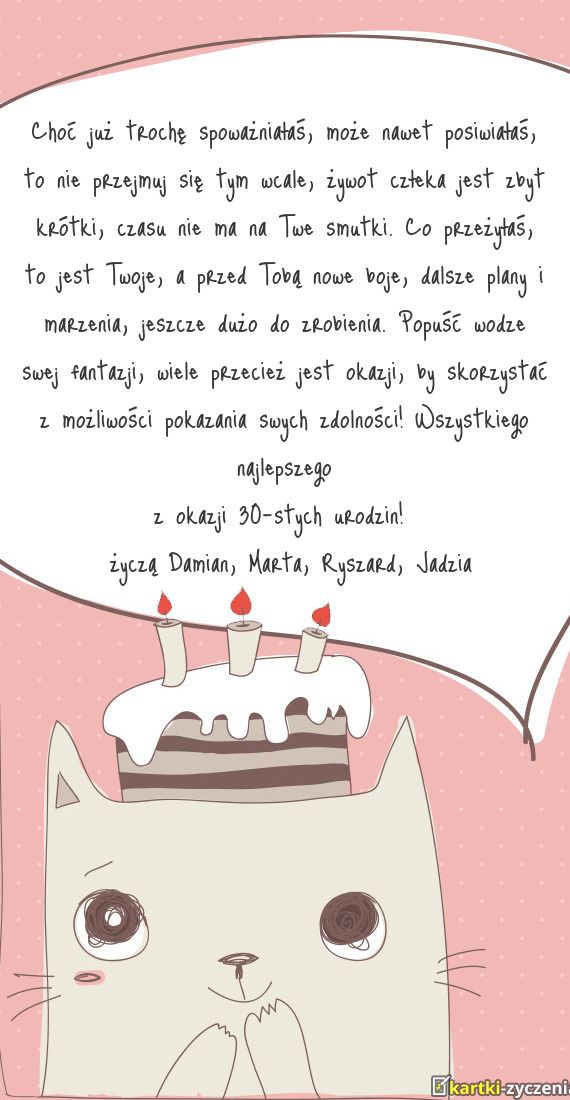 Choć już trochę spoważniałaś, może nawet posiwiałaś,
to nie przejmuj się tym wcale, żywot człeka jest zbyt
krótki, czasu nie ma na Twe smutki. Co przeżyłaś,
to jest Twoje, a przed Tobą nowe boje, dalsze plany i
marzenia, jeszcze dużo do zrobienia. Popuść wodze
swej fantazji, wiele przecież jest okazji, by skorzystać
z możliwości pokazania swych zdolności! Wszystkiego
najlepszego
z okazji 30-stych urodzin!
życzą Damian, Marta, Ryszard, Jadzia
kartki-zyczenia